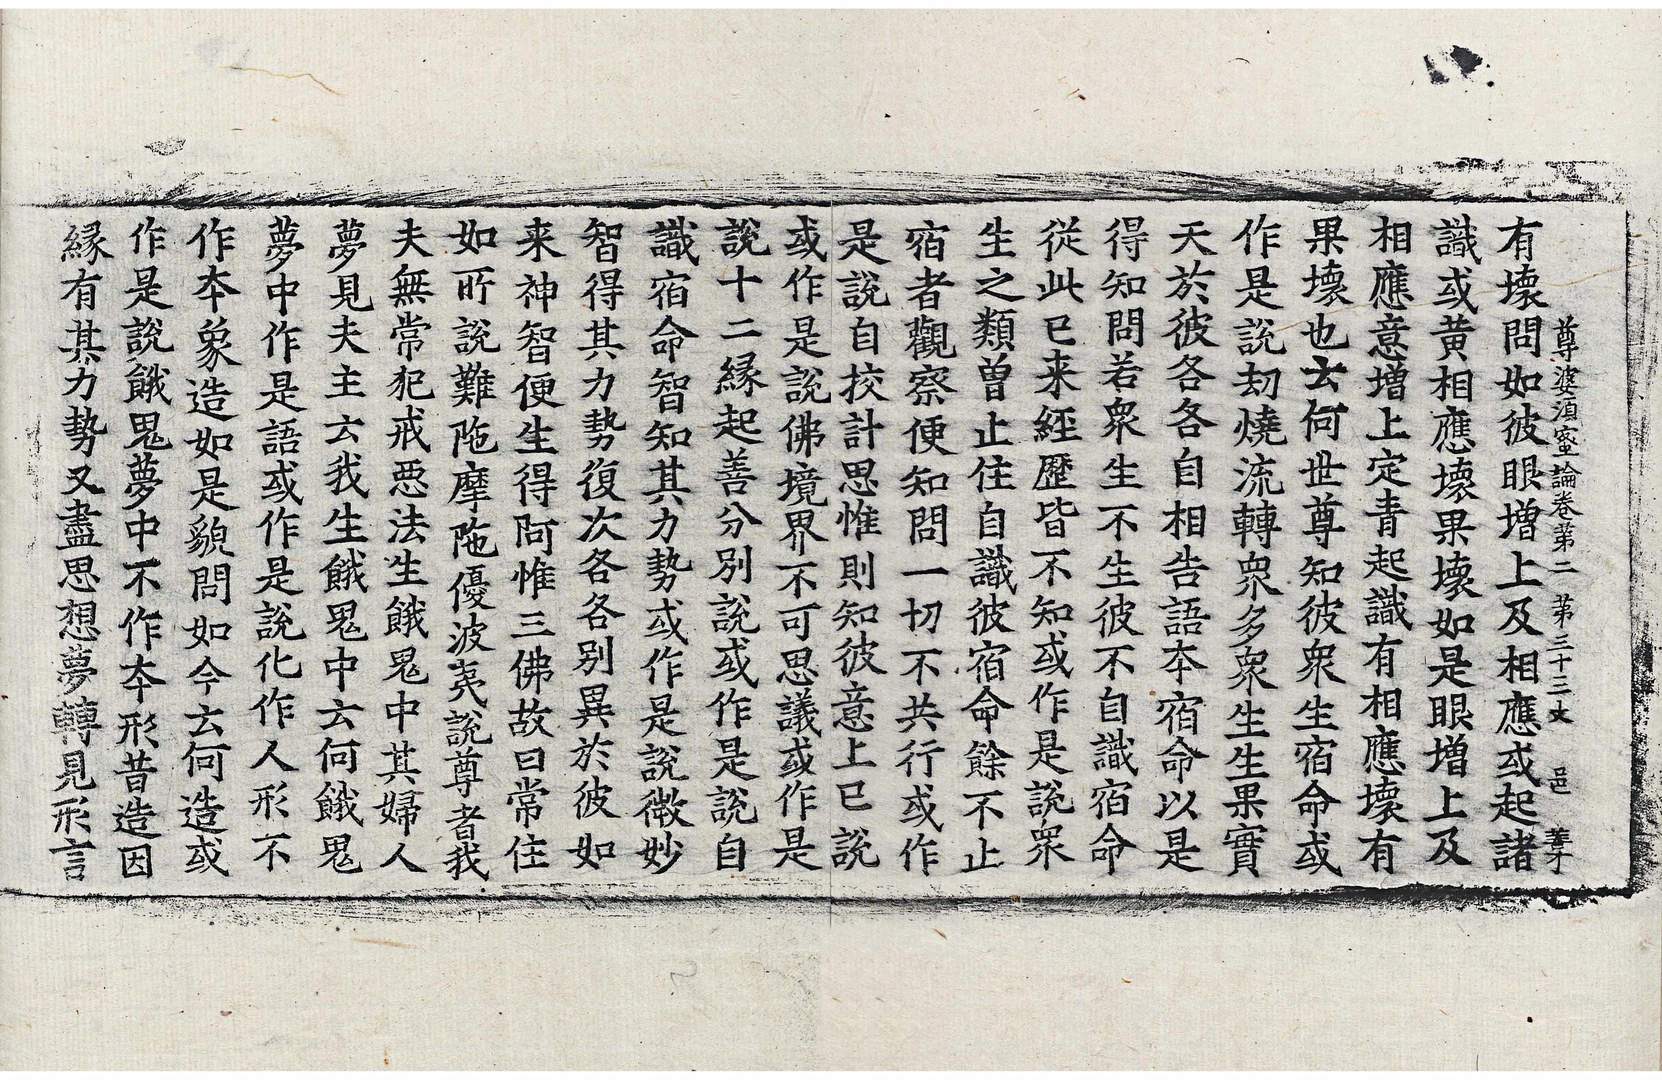 尊婆須蜜論卷第二 第三十三丈 邑 善才
有壞問如彼眼增上及相應或起諸
識或黃相應壞果壞如是眼增上及
相應意增上定青起識有相應壞有
果壞也云何世尊知彼衆生宿命或
作是說劫燒流轉衆多衆生生果實
天於彼各各自相告語夲宿命以是
得知問若衆生不生彼不自識宿命
從此已来經歷皆不知或作是說衆
生之類曾止住自識彼宿命餘不止
宿者觀察便知問一切不共行或作
是說自挍計思惟則知彼意上已說
或作是說佛境界不可思議或作是
說十二緣起善分別說或作是說自
識宿命智知其力勢或作是說微妙
智得其力勢復次各各別異於彼如
来神智便生得阿惟三佛故曰常住
如所說難陁摩陁優波夷說尊者我
夫無常犯戒惡法生餓鬼中其婦人
夢見夫主云我生餓鬼中云何餓鬼
夢中作是語或作是說化作人形不
作夲象造如是貌問如今云何造或
作是說餓鬼夢中不作夲形昔造因
緣有其力勢又盡思想夢轉見形言